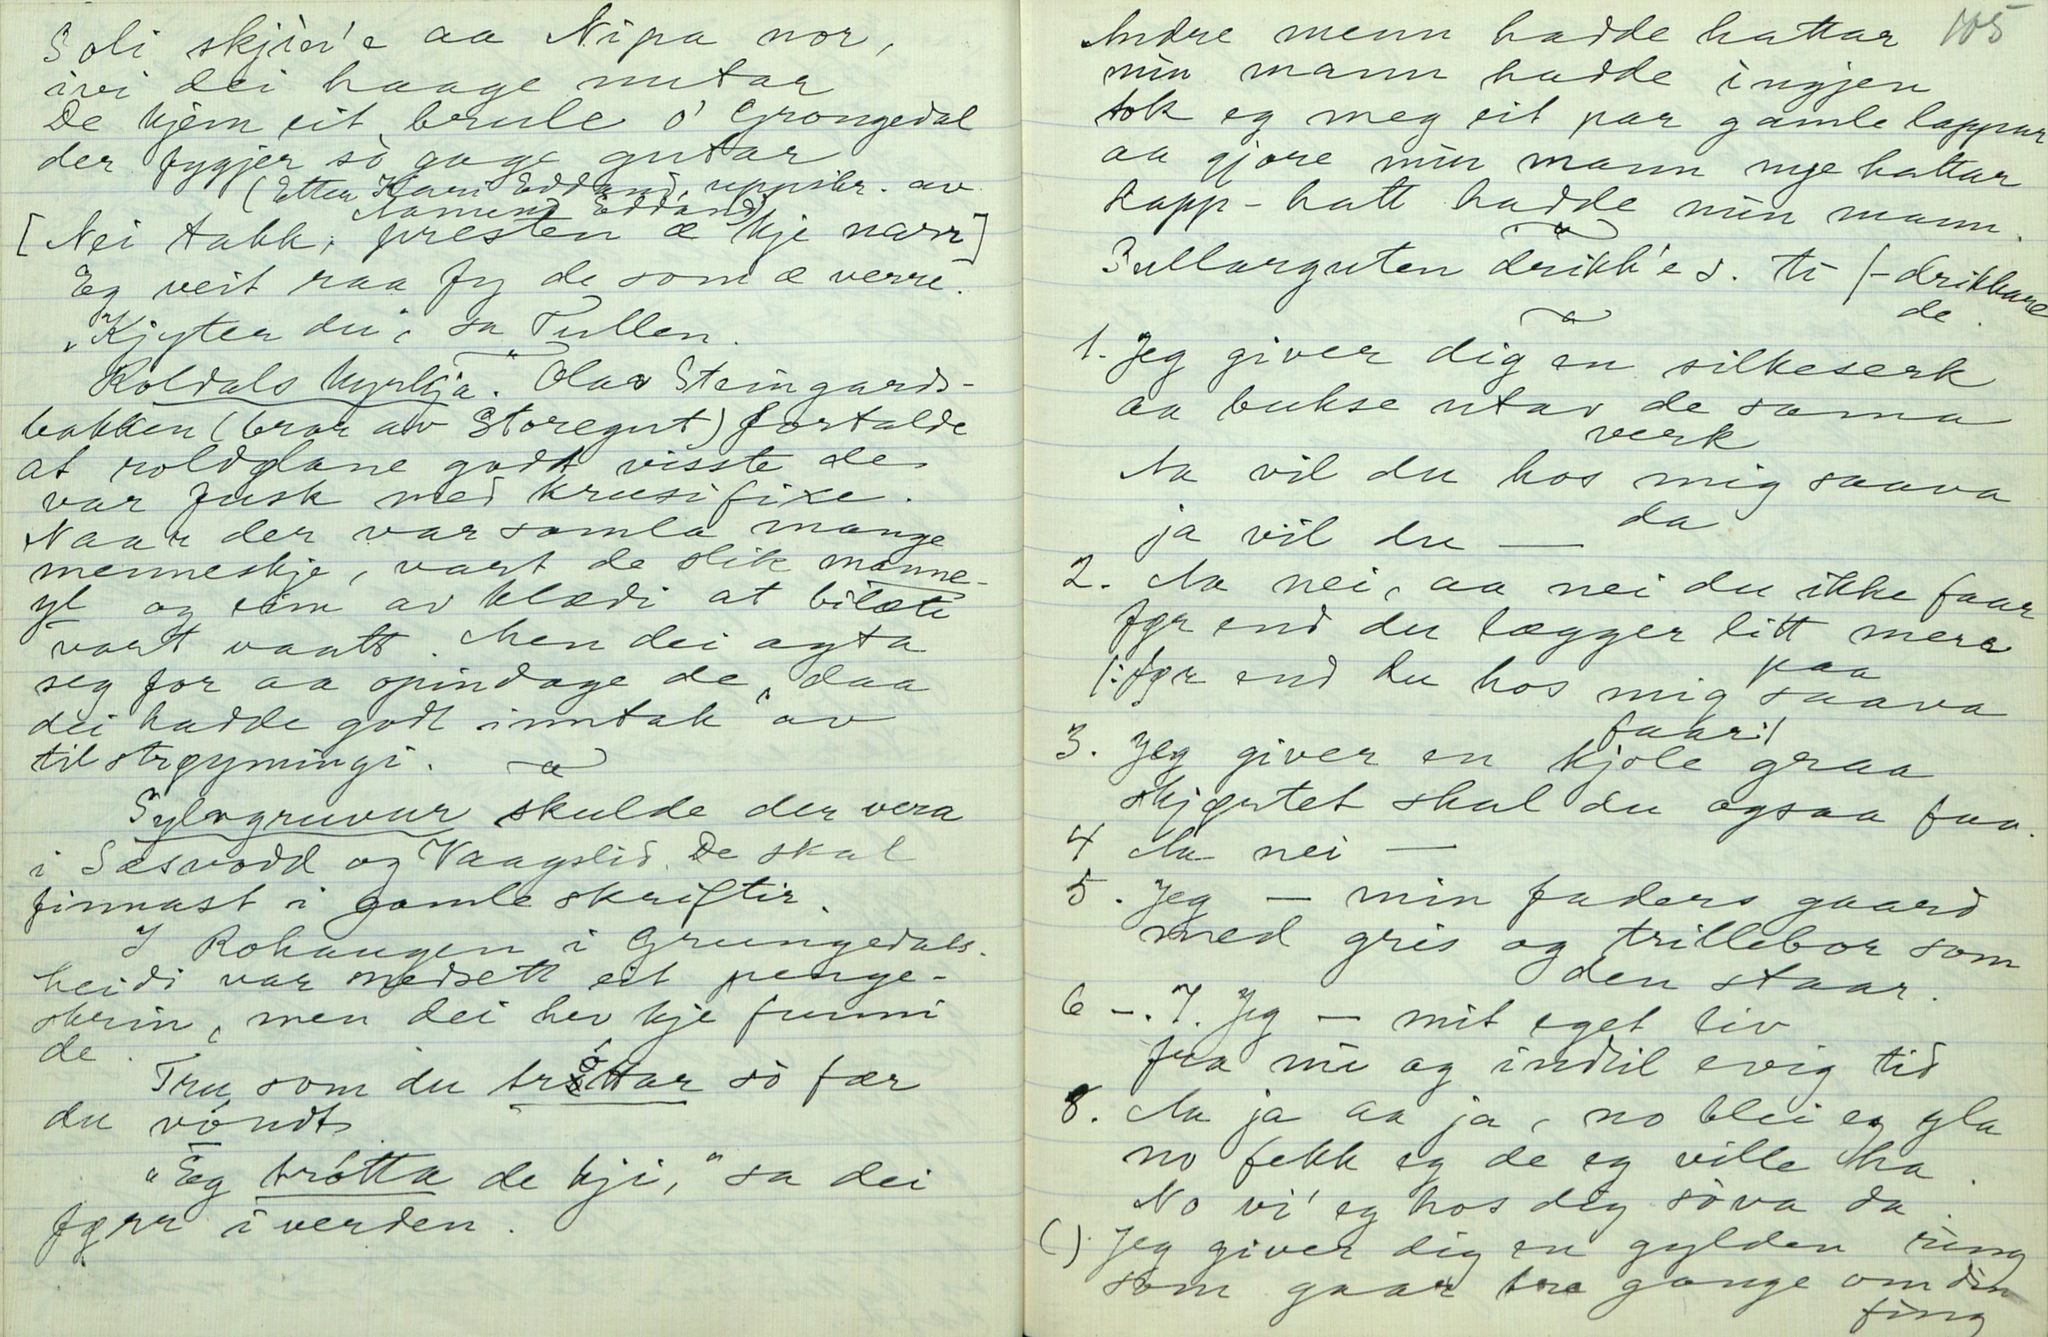 Soli skjin'e aa Nipa nor,
ivi dei haage nutar
De kjem eit brule o' Grongedal
der fygjer sò gage gutar
(Etter Kari Eddand, uppskr. av
Eddand)
[Nei takk, presten æ kje narr]
Eg veit raa fy de som æ verre.
"Kjyter du", sa Tullen.
Roldals kyrkja. Olav Steingards-
bakken (bror av Storegut) fortalde
at roldølane godt visste de
var fusk med krusifixe.
Naar der var samla mange
menneskje, vart de slik manne-
yl og eim av klædi at bilæti
vart vaatt. Men dei agta
seg for aa opindage de, daa
dei hadde godt inntak av
tilstrøymingi.
Sylvgruvur skulde der vera
i Sæsvodd og Vaagslid. De skal
finnast i gamle skriftir.
I Rohaugen i Grungedals-
heidi var nedsett eit penge-
skrin, men dei hev kje funni
de.
Tru som du tróttar sò fær
du vondt
"Eg trótta de kji," sa dei
førr i verden.
105
Andre menn hadde hattar
min mann hadde ingjen
tok eg meg eit par gamle lappar
aa gjore min mann nye hattar
Lapp-hatt hadde min mann.
Bullarguten drikk'e s. ti (- drikkane
de.
1. Jeg giver dig en silkeserk
aa bukse utav de sama
verk
Aa vil du hos mig saava
da
ja vil du —
2. Aa nei, aa nei du ikke faar
før end du lægger litt mere
paa
|: før end du hos mig saava
faar :|
3. Jeg giver en kjole graa
skjørtet skal du ogsaa faa.
4 Aa nei —
5. Jeg — min faders gaard
med gris og trillebor som
den staar.
6 –. 7. Jeg — mit eget liv
fra nu og indtil evig tid
8. Aa ja aa ja, no blei eg gla
no fekk eg de eg ville ha.
No vi' eg hos dig sòva da.
() Jeg giver dig en gylden ring
som gaar tre gange om din
fing